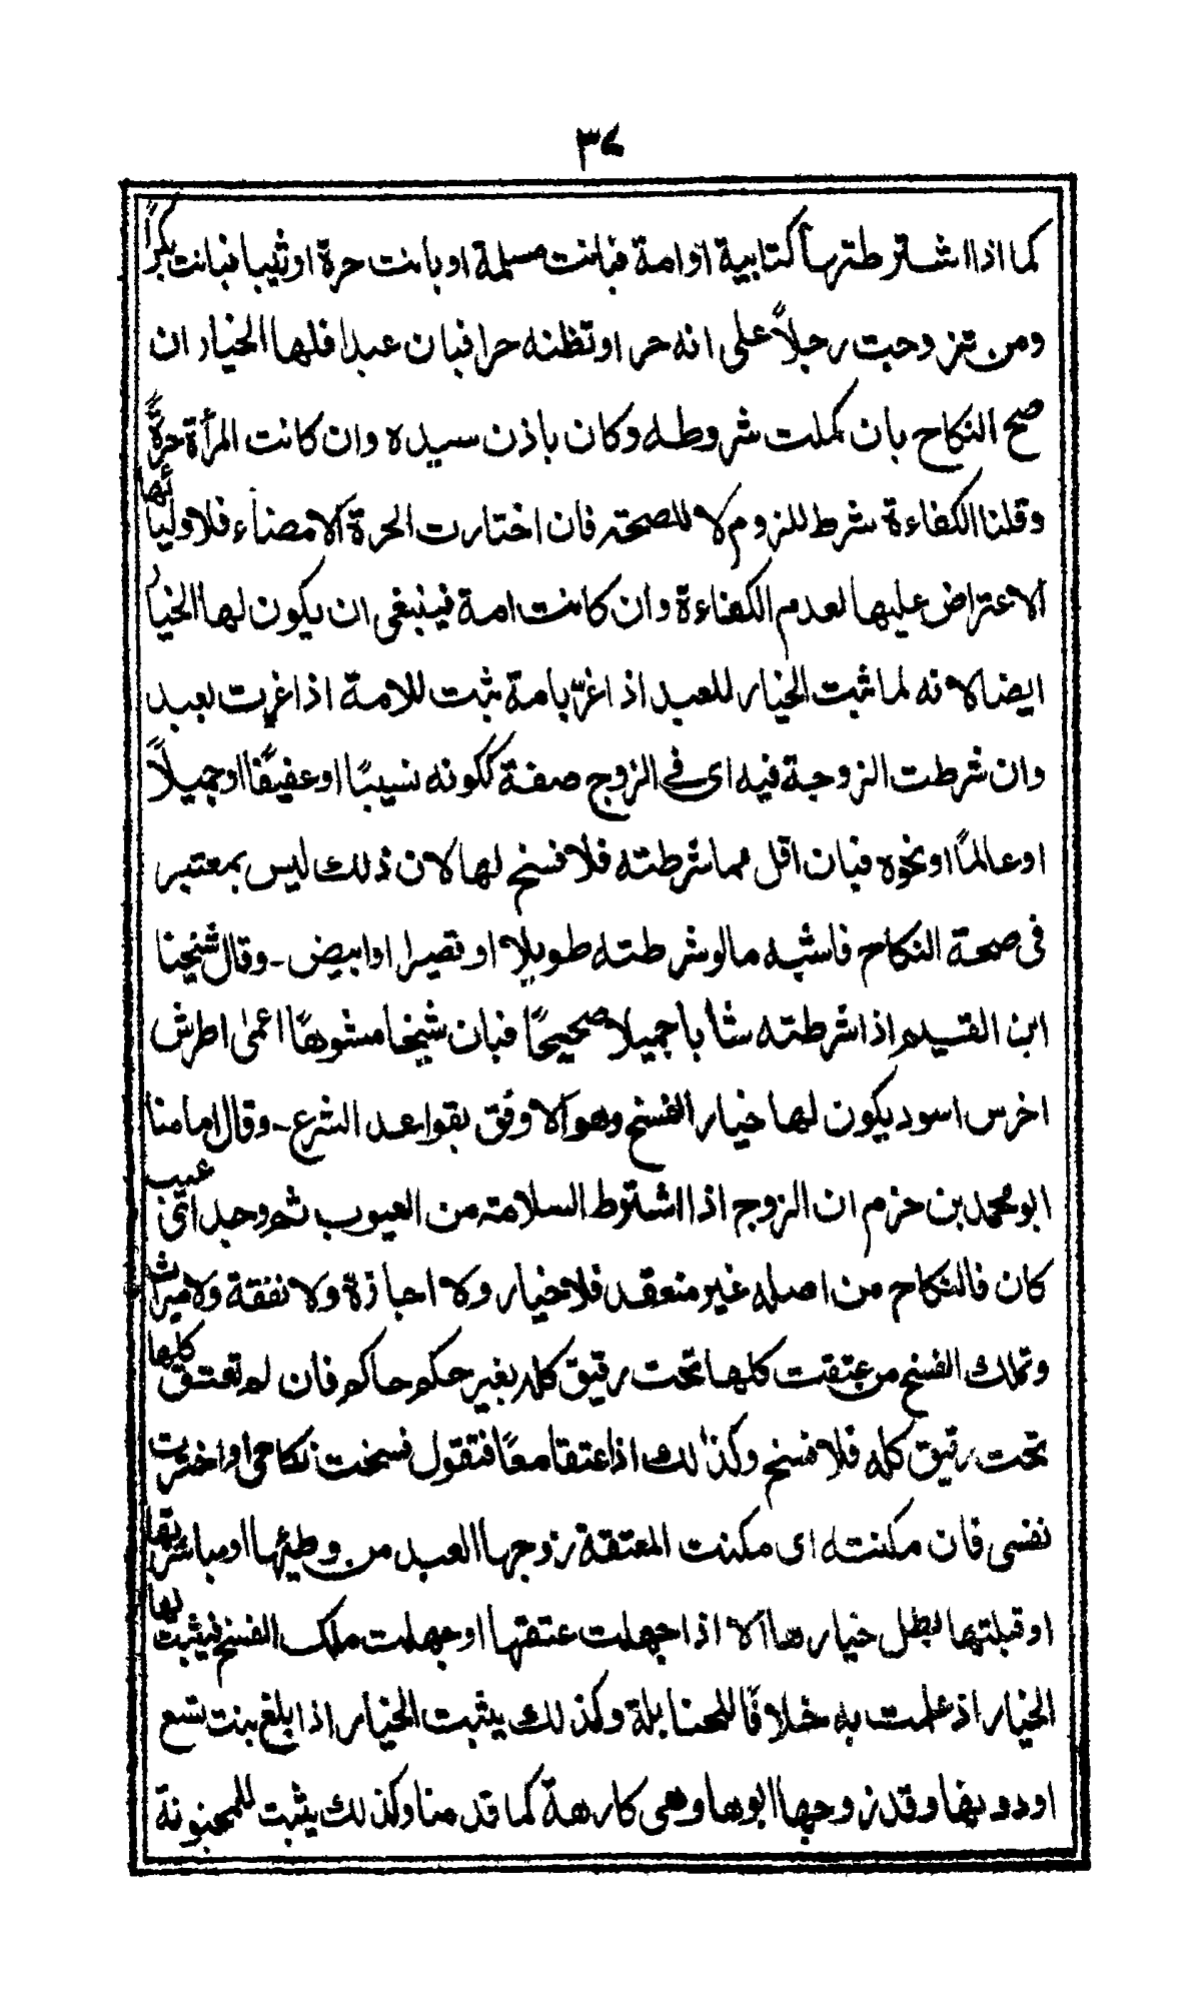 ٣٧
كما اذا اشترطتها كتابية او امة فبانت مسلمة او بانت حرة او ثيبا فبانت بكرًا
ومن تزوجت رجلاً على انه حر او تظنه حرا فبان عبدا فلها الخيار ان
صح النكاح بان كملت شروطه وكان باذن سيده وان كانت المرأة حرةً
وقلنا الكفاءة شرط للزوم لا للصحة فان اختارت الحرة الامضاء فلاوليائها
الاعتراض عليها لعدم الكفاءة وان كانت امة فينبغى ان يكون لها الخيار
ايضا لانه لما ثبت الخيار للعبد اذا غرّ بامة ثبت للامة اذا غرت بعبد
وان شرطت الزوجة فيه اى فى الزوج صفة ككونه نسيبًا او عفيفًا او جميلاً
او عالمًا او نحوه فبان اقل مما شرطته فلا فسخ لها لان ذلك ليس بمعتبر
فى صحة النكاح فاشبه ما لو شرطته طويلا او قصيرا او ابيض ـ وقال شيخنا
ابن القيم اذا شرطته شابا جميلا صحيحًا فبان شيخا مشوهًا اعمى اطرش
اخرس اسود يكون لها خيار الفسخ وهو الاوفق بقواعد الشرع ـ وقال امامنا
ابو محمد بن حزم ان الزوج اذا اشترط السلامة من العيوب ثم وجد اى عيب
كان فالنكاح من اصله غير منعقد فلا خيار ولا اجازة ولا نفقة ولا ميراث
وتملك الفسخ من عتقت كلها تحت رقيق كله بغير حكم حاكم فان لم تعتق كلها
تحت رقيق كله فلا فسخ وكذلك اذا عتقا معًا فتقول فسخت نكاحى او اخترت
نفسى فان مكنته اى مكنت المعتقة زوجها العبد من وطيها او مباشرتها
او قبلتها بطل خيارها الا اذا جهلت عتقها او جهلت ملك الفسخ فيثبت لها
الخيار اذ علمت به خلافًا للحنابلة وكذلك يثبت الخيار اذا بلغ بنت تسع
او دونها وقد زوجها ابوها وهى كارهة كما قدمنا وكذلك يثبت للمجنونة